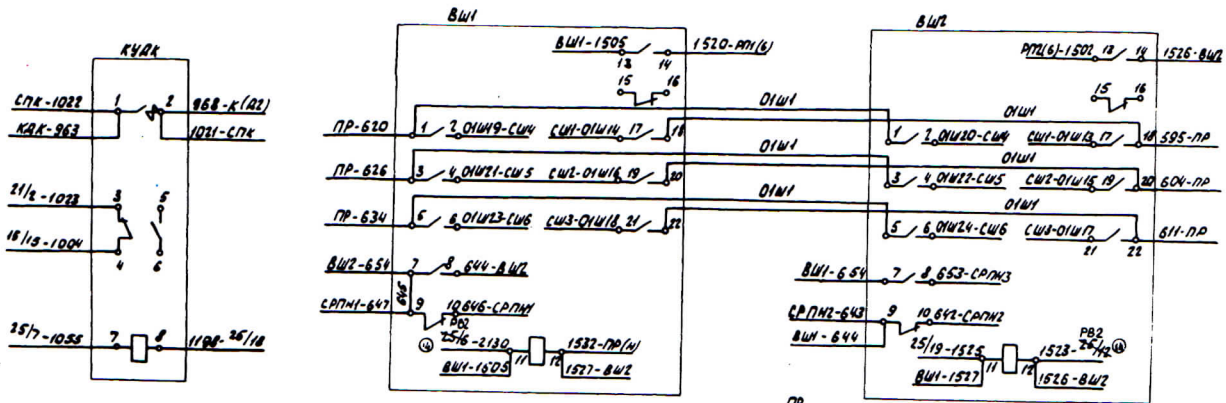 КУДК
СПК-1022 1 2 968-К(Д2)
КДК-963 1021-СПК
21/2-1023 3 5
16/15-1004 4 6
25/7-1055 7 8 1198-26/18
ВШ1
ВШ1-1505 13 14 1520-РП1(6)
15 16
01Ш1
ПР-620 1 2 01Ш19-СШ4 СШ1-01Ш14 17 18
01Ш1
ПР-626 3 4 01Ш21-СШ5 СШ2-01Ш16 19 20
01Ш1
ПР-634 5 6 01Ш23-СШ6 СШ3-01Ш18 21 22
ВШ2-654 7 8 644-ВШ2
645
СРПН1-647 9 10 646-СРПН1
РВ2
14 25/6-2130 11 12 1532-ПР(Н)
ВШ1-1505 1527-ВШ2
ВШ2
РП2(6)-1502 13 14 1526-ВШ2
15 16
01Ш1
1 2 01Ш20-СШ4 СШ1-01Ш13 17 18 595-ПР
01Ш1
3 4 01Ш22-СШ5 СШ2-01Ш15 19 20 604-ПР
01Ш1
5 6 01Ш24-СШ6 СШ3-01Ш17 21 22 611-ПР
ВШ1-654 7 8 653-СРПН3
СРПН2-643 9 10 642-СРПН2
ВШ1-644
РВ2
25/19-1525 11 12 1523-26/12
ВШ1-1527 1526-ВШ2
ПР